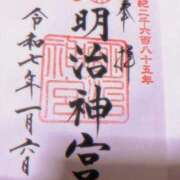 紀二千六百八十五年
奉拝
明治神宮
令和七年一月六日